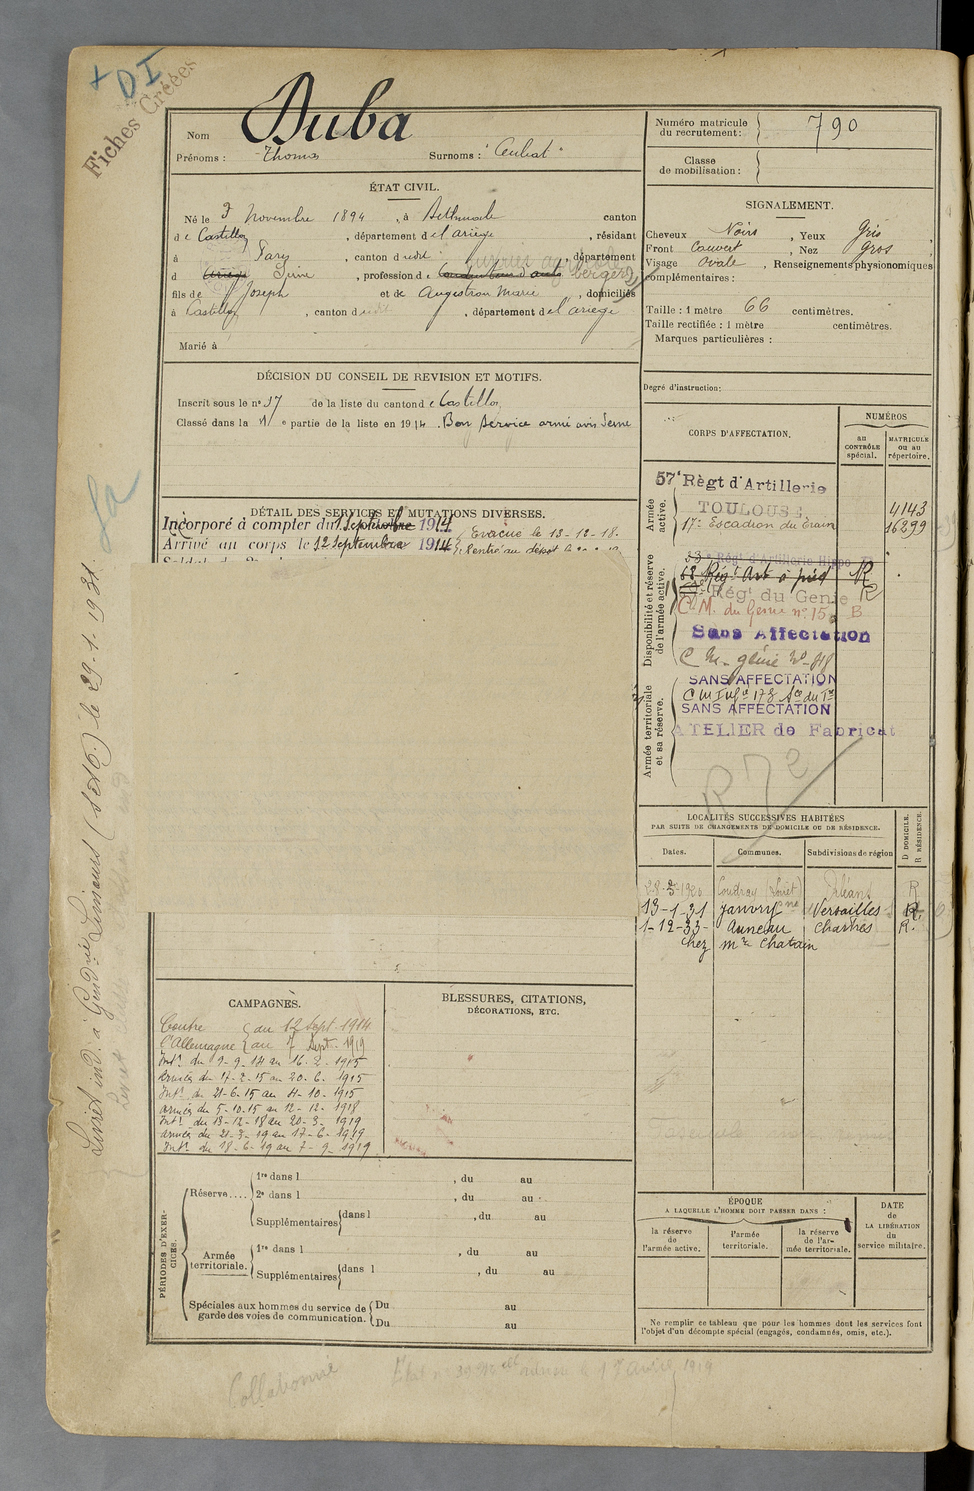 + DI
Fiches Créées
Nom Duba
Prénoms : Thomas Surnoms :
ÉTAT CIVIL.
Né le 3 Novembre 1894, à Bethmale canton
de Castillon, département de l'ariège, résidant
à canton dudit, département
d Seine, profession de
fils de Joseph et de Marie, domiciliés
à Castillon, canton dudit, département de l'ariège
Marié à
DÉCISION DU CONSEIL DE REVISION ET MOTIFS.
Inscrit sous le n° 37 de la liste du canton de Castillon
Classé dans la 1e partie de la liste en 1914. Bon service armé avis Seine
DÉTAIL DES SERVICES ET MUTATIONS DIVERSES.
Incorporé à compter du 1 Septembre 1914
Évacué le 13-12-18.
Arrivé au corps le 12 Septembre 1914
Rentré au dépôt le
CAMPAGNES.
Contre du 12 Sept 1914
l'Allemagne au 7 Sept 1919
Intr du 9-9-14 au 16-2-1915
Armées du 17-2-15 au 20-6-1915
Intr du 21-6-15 au 4-10-1915
Armées du 5-10-15 au 12-12-1918
Intr du 13-12-18 au 20-3-1919
Armées du 21-3-19 au 17-6-1919
Intr du 18-6-19 au 7-9-1919
BLESSURES, CITATIONS,
DÉCORATIONS, ETC.
PÉRIODES D'EXERCICES.
Réserve....
1re dans l , du au
2e dans l , du au
Supplémentaires dans l , du au
Armée territoriale.
1re dans l , du au
Supplémentaires dans l , du au
Spéciales aux hommes du service de
garde des voies de communication.
Du au
Du au
Numéro matricule
du recrutement: 790
Classe
de mobilisation:
SIGNALEMENT.
Cheveux Noirs, Yeux Gris
Front Couvert, Nez Gros,
Visage Ovale, Renseignements physionomiques
complémentaires :
Taille : 1 mètre 66 centimètres.
Taille rectifiée : 1 mètre centimètres.
Marques particulières :
Degré d'instruction:
CORPS D'AFFECTATION.
NUMÉROS
au
CONTRÔLE
spécial.
MATRICULE
ou au
répertoire.
Armée
active.
57e Règt d'Artillerie
TOULOUSE
4143
17e Escadron du Train
16299
Disponibilité et réserve
de l'armée active.
Régt d'Artillerie Hippo
68 Régt Art à pied R
Régt du Génie R
C.M. du Génie n° 15 B
Sans Affectation
C M génie n° 48
Armée territoriale
et sa réserve.
SANS AFFECTATION
SANS AFFECTATION
ATELIER de Fabricat
LOCALITÉS SUCCESSIVES HABITÉES
PAR SUITE DE CHANGEMENTS DE DOMICILE OU DE RÉSIDENCE.
Dates.
Communes.
Subdivisions de région
D DOMICILE.
R RÉSIDENCE.
Coudray (Loiret) Orléans R
13-1-31 Janvry Versailles R.
1-12-33 Auneau Chartres R.
chez Mme Chatain
ÉPOQUE
A LAQUELLE L'HOMME DOIT PASSER DANS :
la réserve
de
l'armée active.
l'armée
territoriale.
la réserve
de l'armée territoriale.
DATE
de
LA LIBÉRATION
du
service militaire.
Ne remplir ce tableau que pour les hommes dont les services font
l'objet d'un décompte spécial (engagés, condamnés, omis, etc.).
Livret ind. à Gend.rie Limours (S et O.) le 29-1-1931
Collationné